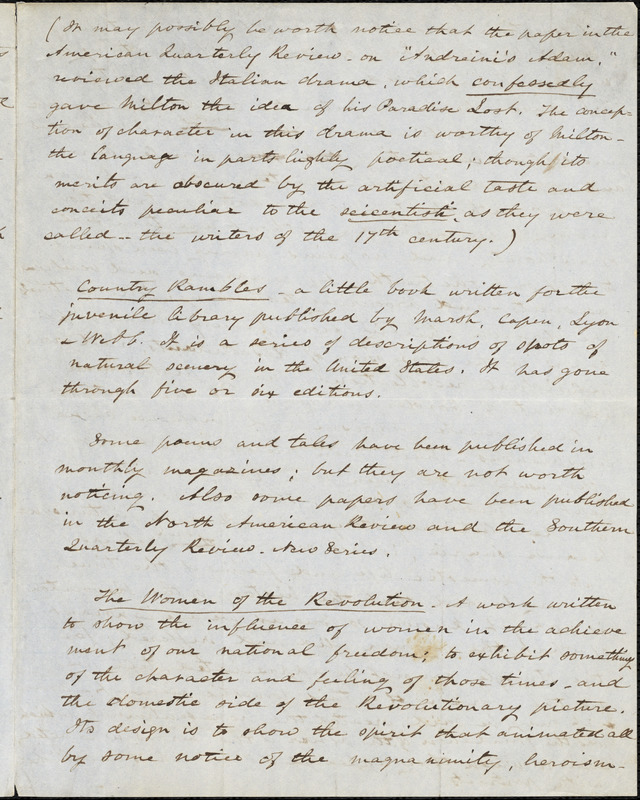 (It may possibly be worth notice that the paper in the
American Quarterly Review - on "Andreini's Adam,"
reviewed the Italian drama, which confessedly
gave Milton the idea of his Paradise Lost. The concep-
tion of character in this drama is worthy of Milton -
the language in parts highly poetical; though its
merits are obscured by the artificial taste and
conceits peculiar to the seicentisti, as they were
called - the writers of the 17th century.)
Country Rambles - a little book written for the
juvenile library published by Marsh, Capen, Lyon
& Webb. It is a series of descriptions of spots of
natural scenery in the United States. It has gone
through five or six editions.
Some poems and tales have been published in
monthly magazines; but they are not worth
noticing. Also some papers have been published
in the North American Review and the Southern
Quarterly Review - New Series.
The Women of the Revolution - A work written
to show the influence of women in the achieve
ment of our national freedom; to exhibit something
of the character and feeling of those times - and
the domestic side of the Revolutionary picture.
Its design is to show the spirit that animated all
by some notice of the magnanimity, heroism -